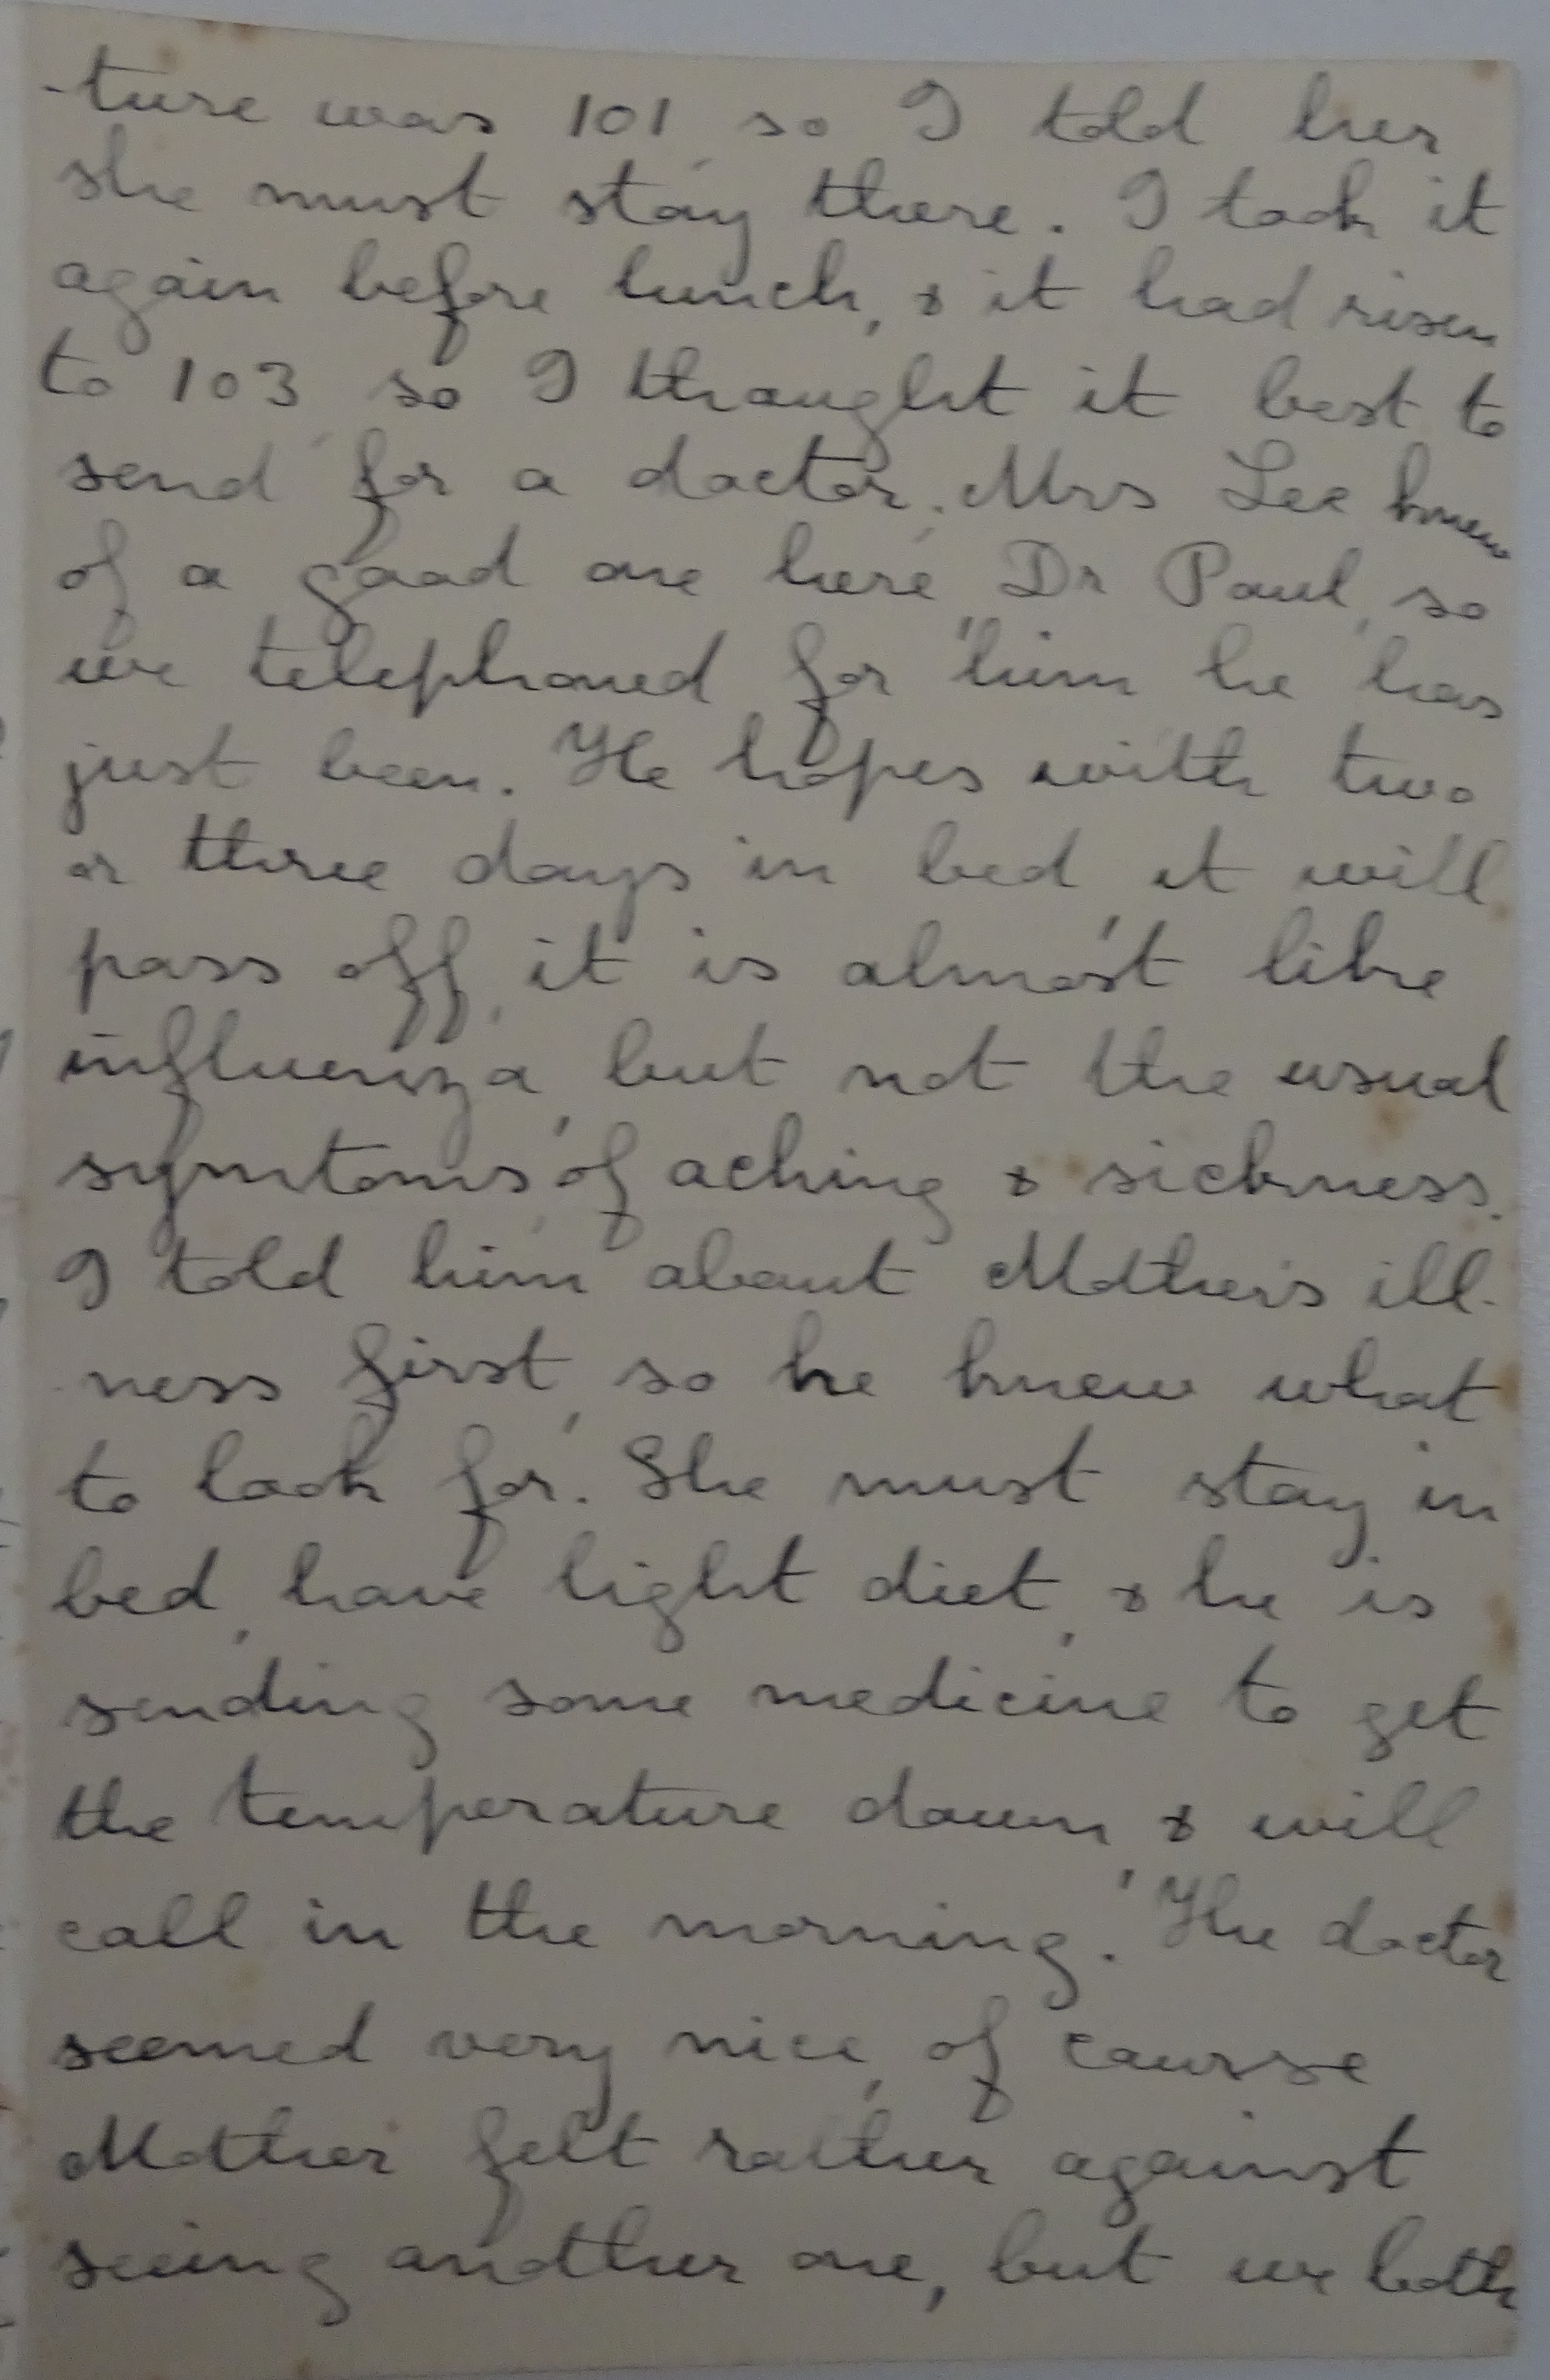 -ture was 101, so I told her
she must stay there. I took it
again before lunch, & it had risen
to 103, so I thought it best to
send for a doctor. Mrs Lee knew
of a good one here, Dr Paul, so
we telephoned for him he has
just been. He hopes with two
or three days in bed, it will
pass off, it is almost like
influenza, but not the usual
symtoms of aching & sickness.
I told him about Mother's ill-
-ness first, so he knew what
to look for. She must stay in
bed, have light diet, & he is
sending some medicine to get
the temperature down, & will
call in the morning. The doctor
seemed very nice, of course
Mother felt rather against
seeing another one, but we both